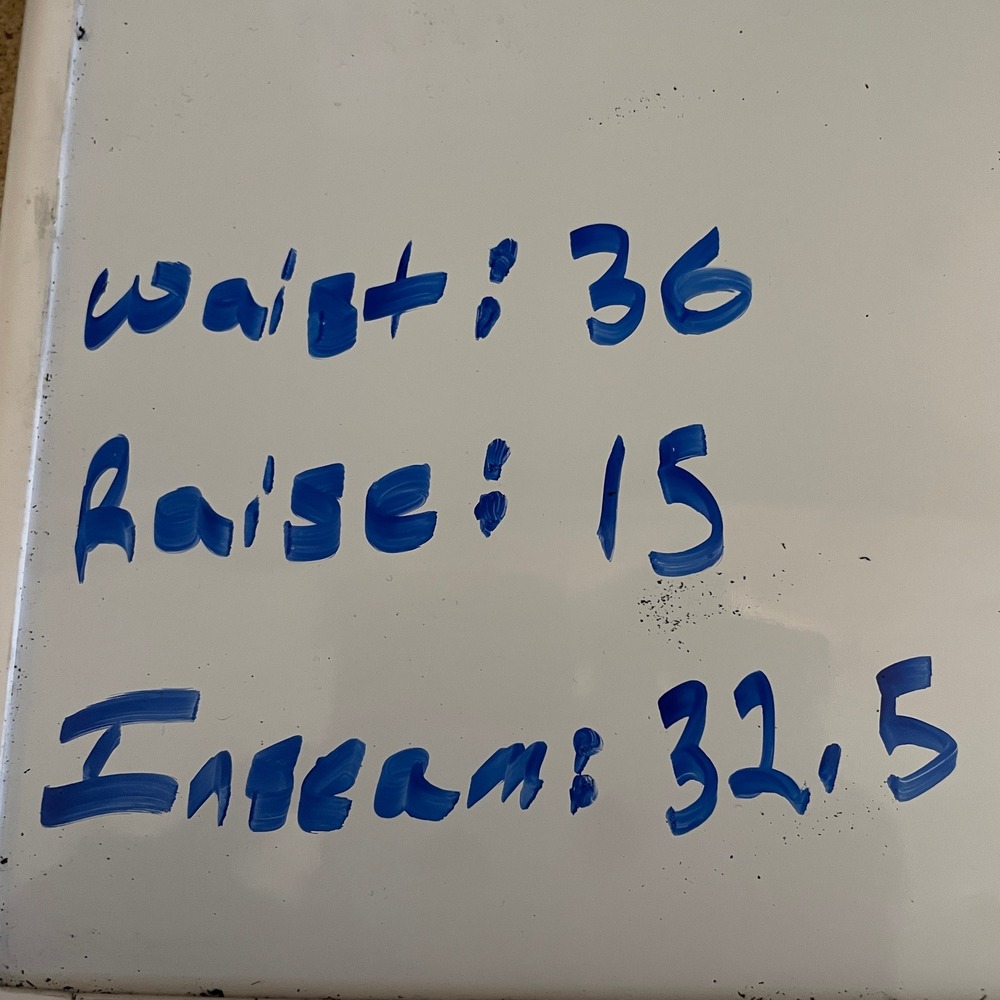 Waist: 36
Raise: 15
Inseam: 32.5